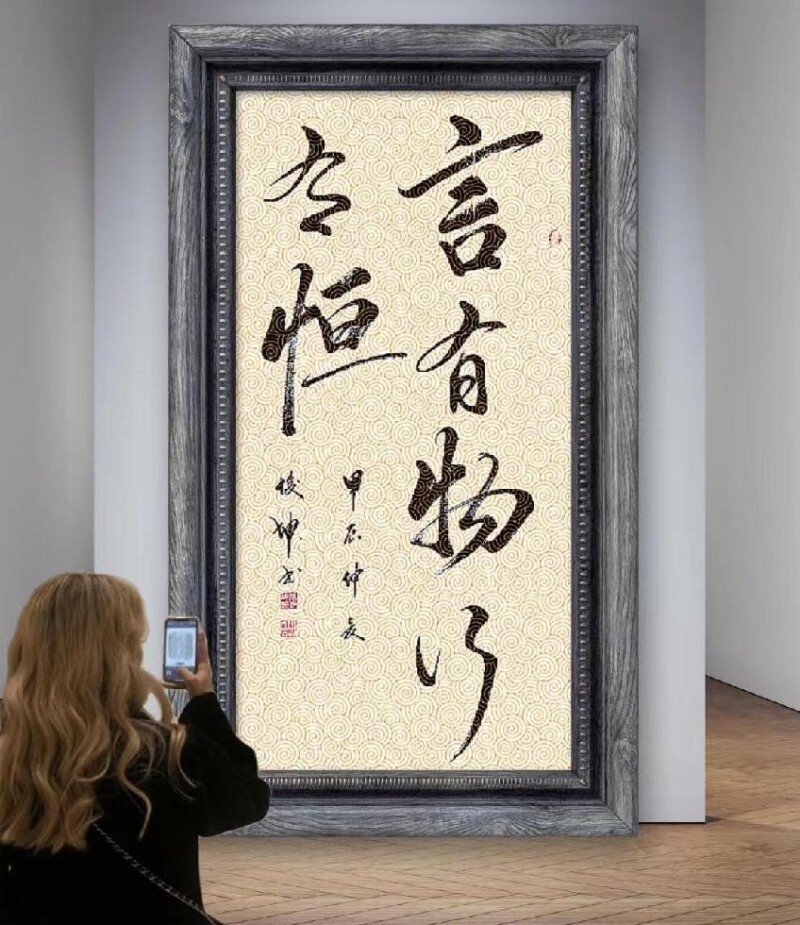 言有物行
有恒
甲辰仲夏
俊坤书